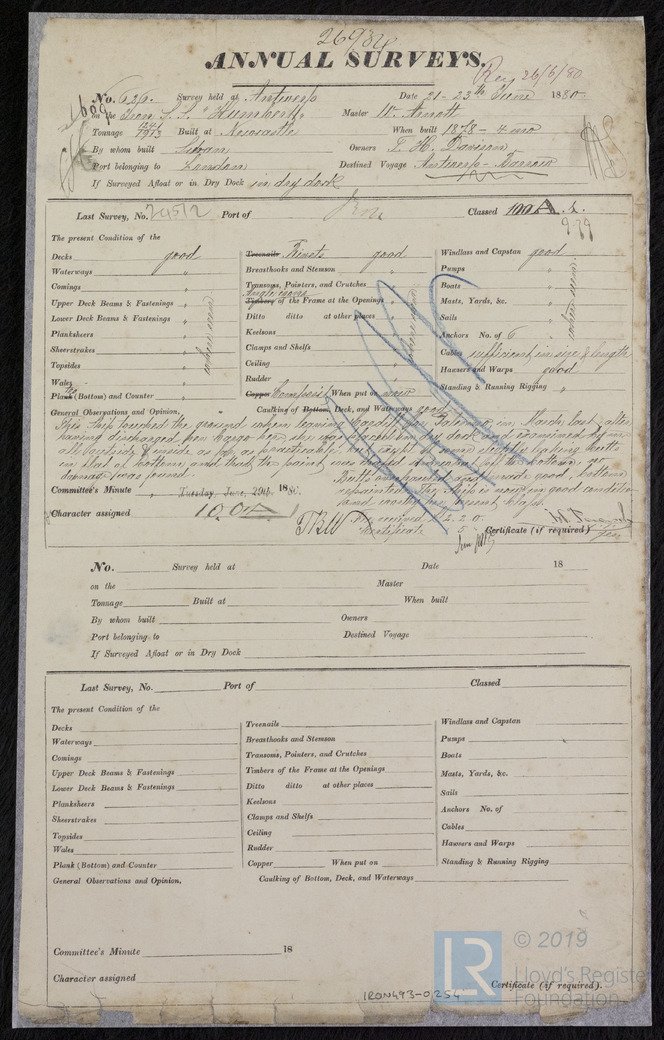 ANNUAL SURVEYS.
Rec 26/6/80
No. 626. Survey held at Antwerp Date 21 - 23th June 1880
on the Iron S.S. "Humboldt" Master W. Arnott
Tonnage 1913 Built at Newcastle When built 1878 - 4 mo
By whom built Owners T. H. Davison
Port belonging to London Destined Voyage Antwerp -
If Surveyed Afloat or in Dry Dock in dry dock
Last Survey, No. Port of Iron Classed 100 A
9.79
The present Condition of the
Decks good
Waterways "
Comings "
Upper Deck Beams & Fastenings "
Lower Deck Beams & Fastenings "
Planksheers "
Sheerstrakes "
Topsides "
Wales "
Plank (Bottom) and Counter "
where seen
Treenails Rivets good
Breasthooks and Stemson "
Transoms, Pointers, and Crutches "
Timbers of the Frame at the Openings "
Ditto ditto at other places "
Keelsons "
Clamps and Shelfs "
Ceiling "
Rudder "
Copper Composit When put on now
Caulking of Bottom, Deck, and Waterways good
Windlass and Capstan good
Pumps "
Boats "
Masts, Yards, &c. "
Sails "
where seen
Anchors No. of 6
Cables sufficient in size & length
Hawsers and Warps good
Standing & Running Rigging "
General Observations and Opinion,
This Ship touched the ground when leaving Cardiff for in March last, after
having discharged her Cargo here she was placed in dry dock and examined by me
all outside & inside as far as practicable, but except of some slightly leaking butts
in flat of bottom and that the paint was rubbed off on part of the bottom, no
damage was found.
Butts and made good, bottom
repainted. The Ship is now in good condition
and worthy her present Class.
Committee's Minute Tuesday, June, 29th. 1880.
Character assigned 100 A
Fee received £ 2. 2. 0.
Certificate 5
Certificate (if required)
No. Survey held at Date 18
on the Master
Tonnage Built at When built
By whom built Owners
Port belonging to Destined Voyage
If Surveyed Afloat or in Dry Dock
Last Survey, No. Port of Classed
The present Condition of the
Decks
Waterways
Comings
Upper Deck Beams & Fastenings
Lower Deck Beams & Fastenings
Planksheers
Sheerstrakes
Topsides
Wales
Plank (Bottom) and Counter
General Observations and Opinion.
Treenails
Breasthooks and Stemson
Transoms, Pointers, and Crutches
Timbers of the Frame at the Openings
Ditto ditto at other places
Keelsons
Clamps and Shelfs
Ceiling
Rudder
Copper When put on
Caulking of Bottom, Deck, and Waterways
Windlass and Capstan
Pumps
Boats
Masts, Yards, &c.
Sails
Anchors No. of
Cables
Hawsers and Warps
Standing & Running Rigging
Committee's Minute 18
Character assigned
Certificate (if required).
IRON493-0254
LR © 2019
Lloyd's Register
Foundation